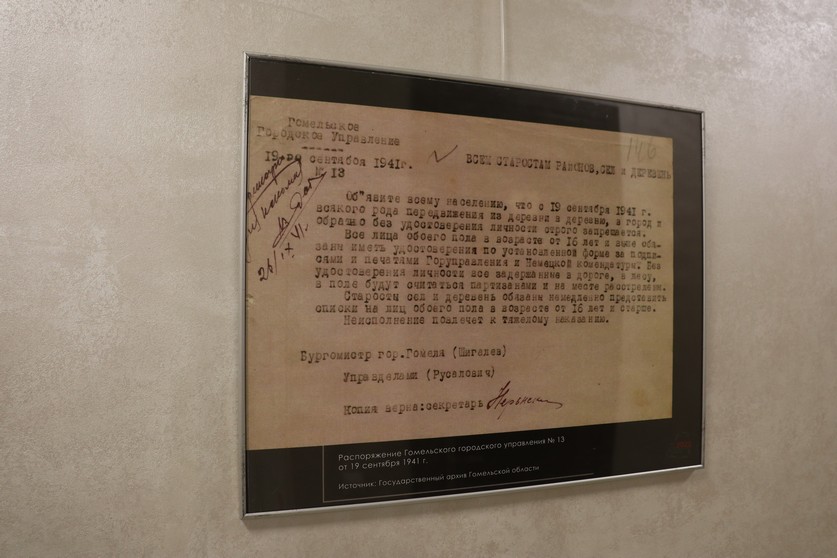 Гомельское
Городское Управление
19-го сентября 1941г.
№ 13
ВСЕМ СТАРОСТАМ РАЙОНОВ, СЕЛ и ДЕРЕВЕНЬ
146
26/IX
Об"явите всему населению, что с 19 сентября 1941 г.
всякого рода передвижения из деревни в деревню, в город и
обратно без удостоверения личности строго запрещается.
Все лица обоего пола в возрасте от 16 лет и выше обя-
заны иметь удостоверения по установленной форме за подпи-
сями и печатями Горуправления и Немецкой комендатуры. Без
удостоверения личности все задержанные в дороге, в лесу,
в поле будут считаться партизанами и на месте расстреляны.
Старосты сел и деревень обязаны немедленно представить
списки на лиц обоего пола в возрасте от 16 лет и старше.
Неисполнение повлечет к тяжелому наказанию.
Бургомистр гор.Гомеля (Шигалев)
Управделами (Русалович)
Копия верна:секретарь
Распоряжение Гомельского городского управления № 13
от 19 сентября 1941 г.
Источник: Государственный архив Гомельской области